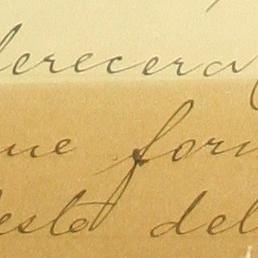 erecera
ue for
esto del